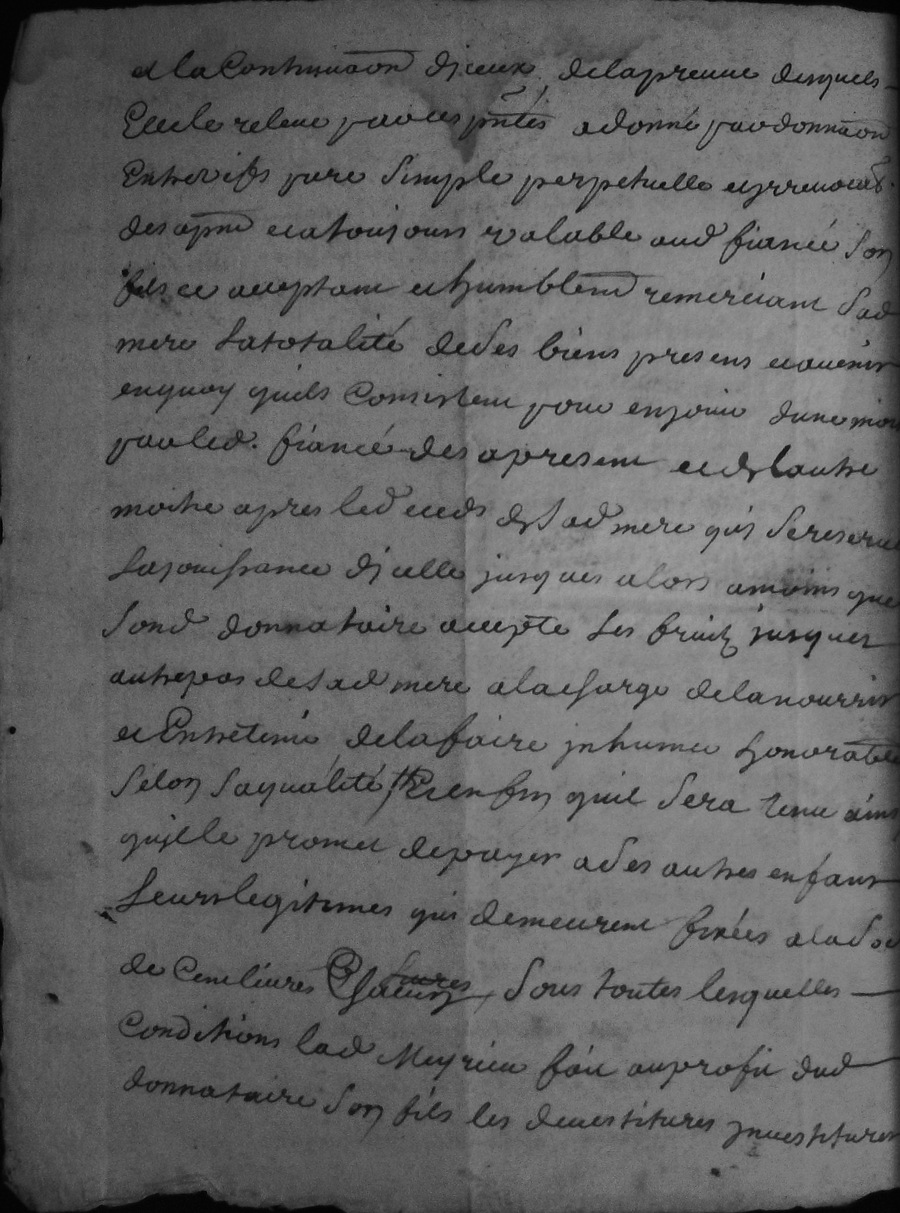 et la Continuaon djceux, delapreuve desquels
Elle le releve par ces pntes a donné par donnaon
Entre vifs pure Simple perpetuelle et jrrevocab.
des apnt et a toujours valable aud fiancé Son
fils ce acceptant et humblemt remerciant Sad
mere La totalité de Ses biens presens et avenir
en quoy quils Consistent pour en jouir dune moi
par led. fiancé des apresent et de lautre
moitie apres led deceds de Sad mere qui Se reserve
La jouissance djcelle jusques alors amoins que
Sond donnataire accepte Les fruitz jusques
au trepas de Sad mere ala charge de la nourrir
et Entretenir de la faire jnhumer honorable
Selon Sa qualité Et en fin quil Sera tenu ains
quelle promet de payer a Ses autres enfans
Leurs legitimes qui demeurent fixées a la So
de Cent livres Chacun, Sous toutes lesquelles
Conditions lad Meyrieu fait au profit dud
donnataire Son fils les devestitures jnvestitures